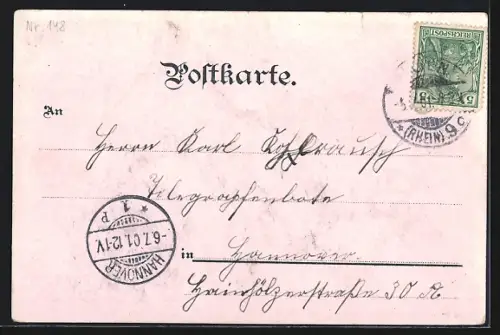 Nr. 148
REICHSPOST
5 5
(RHEIN) 9 c
Postkarte.
An
Herrn Karl Kohlrausch
Telegrapfenbote
in Hannover
Hainhölzerstraße 30 A
* 1 * P
-6.7.01.12-1V.
HANNOVER